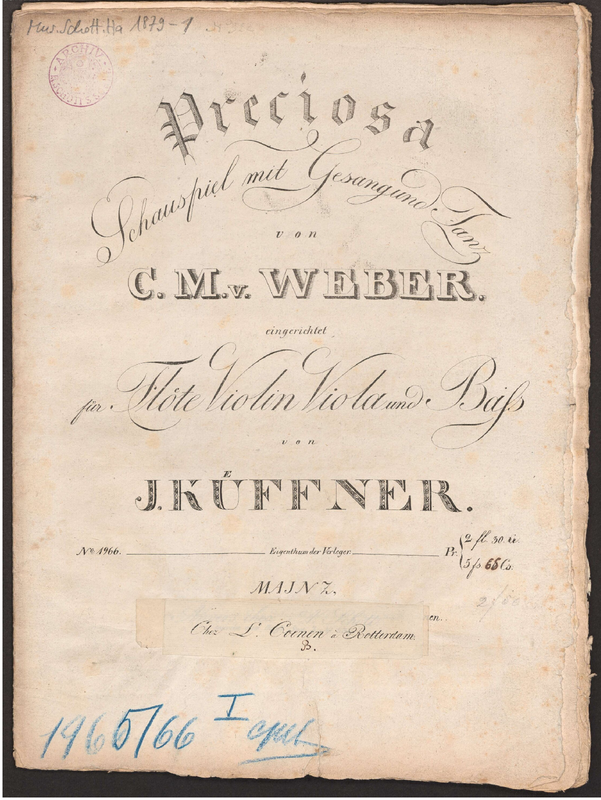 Mus. Schott. Ha 1879-1
ARCHIV
Preciosa
Schauspiel mit Gesang und Tanz
von
C. M. v. WEBER.
eingerichtet
für Flöte Violin Viola und Baſs
von
J. KÜFFNER.
No. 1966. Eigenthum der Verleger. Pr. 2 fl 30
5 f 65 Cs.
MAINZ,
en.
Chez L. Coenen à Rotterdam.
B.
1965/66 I